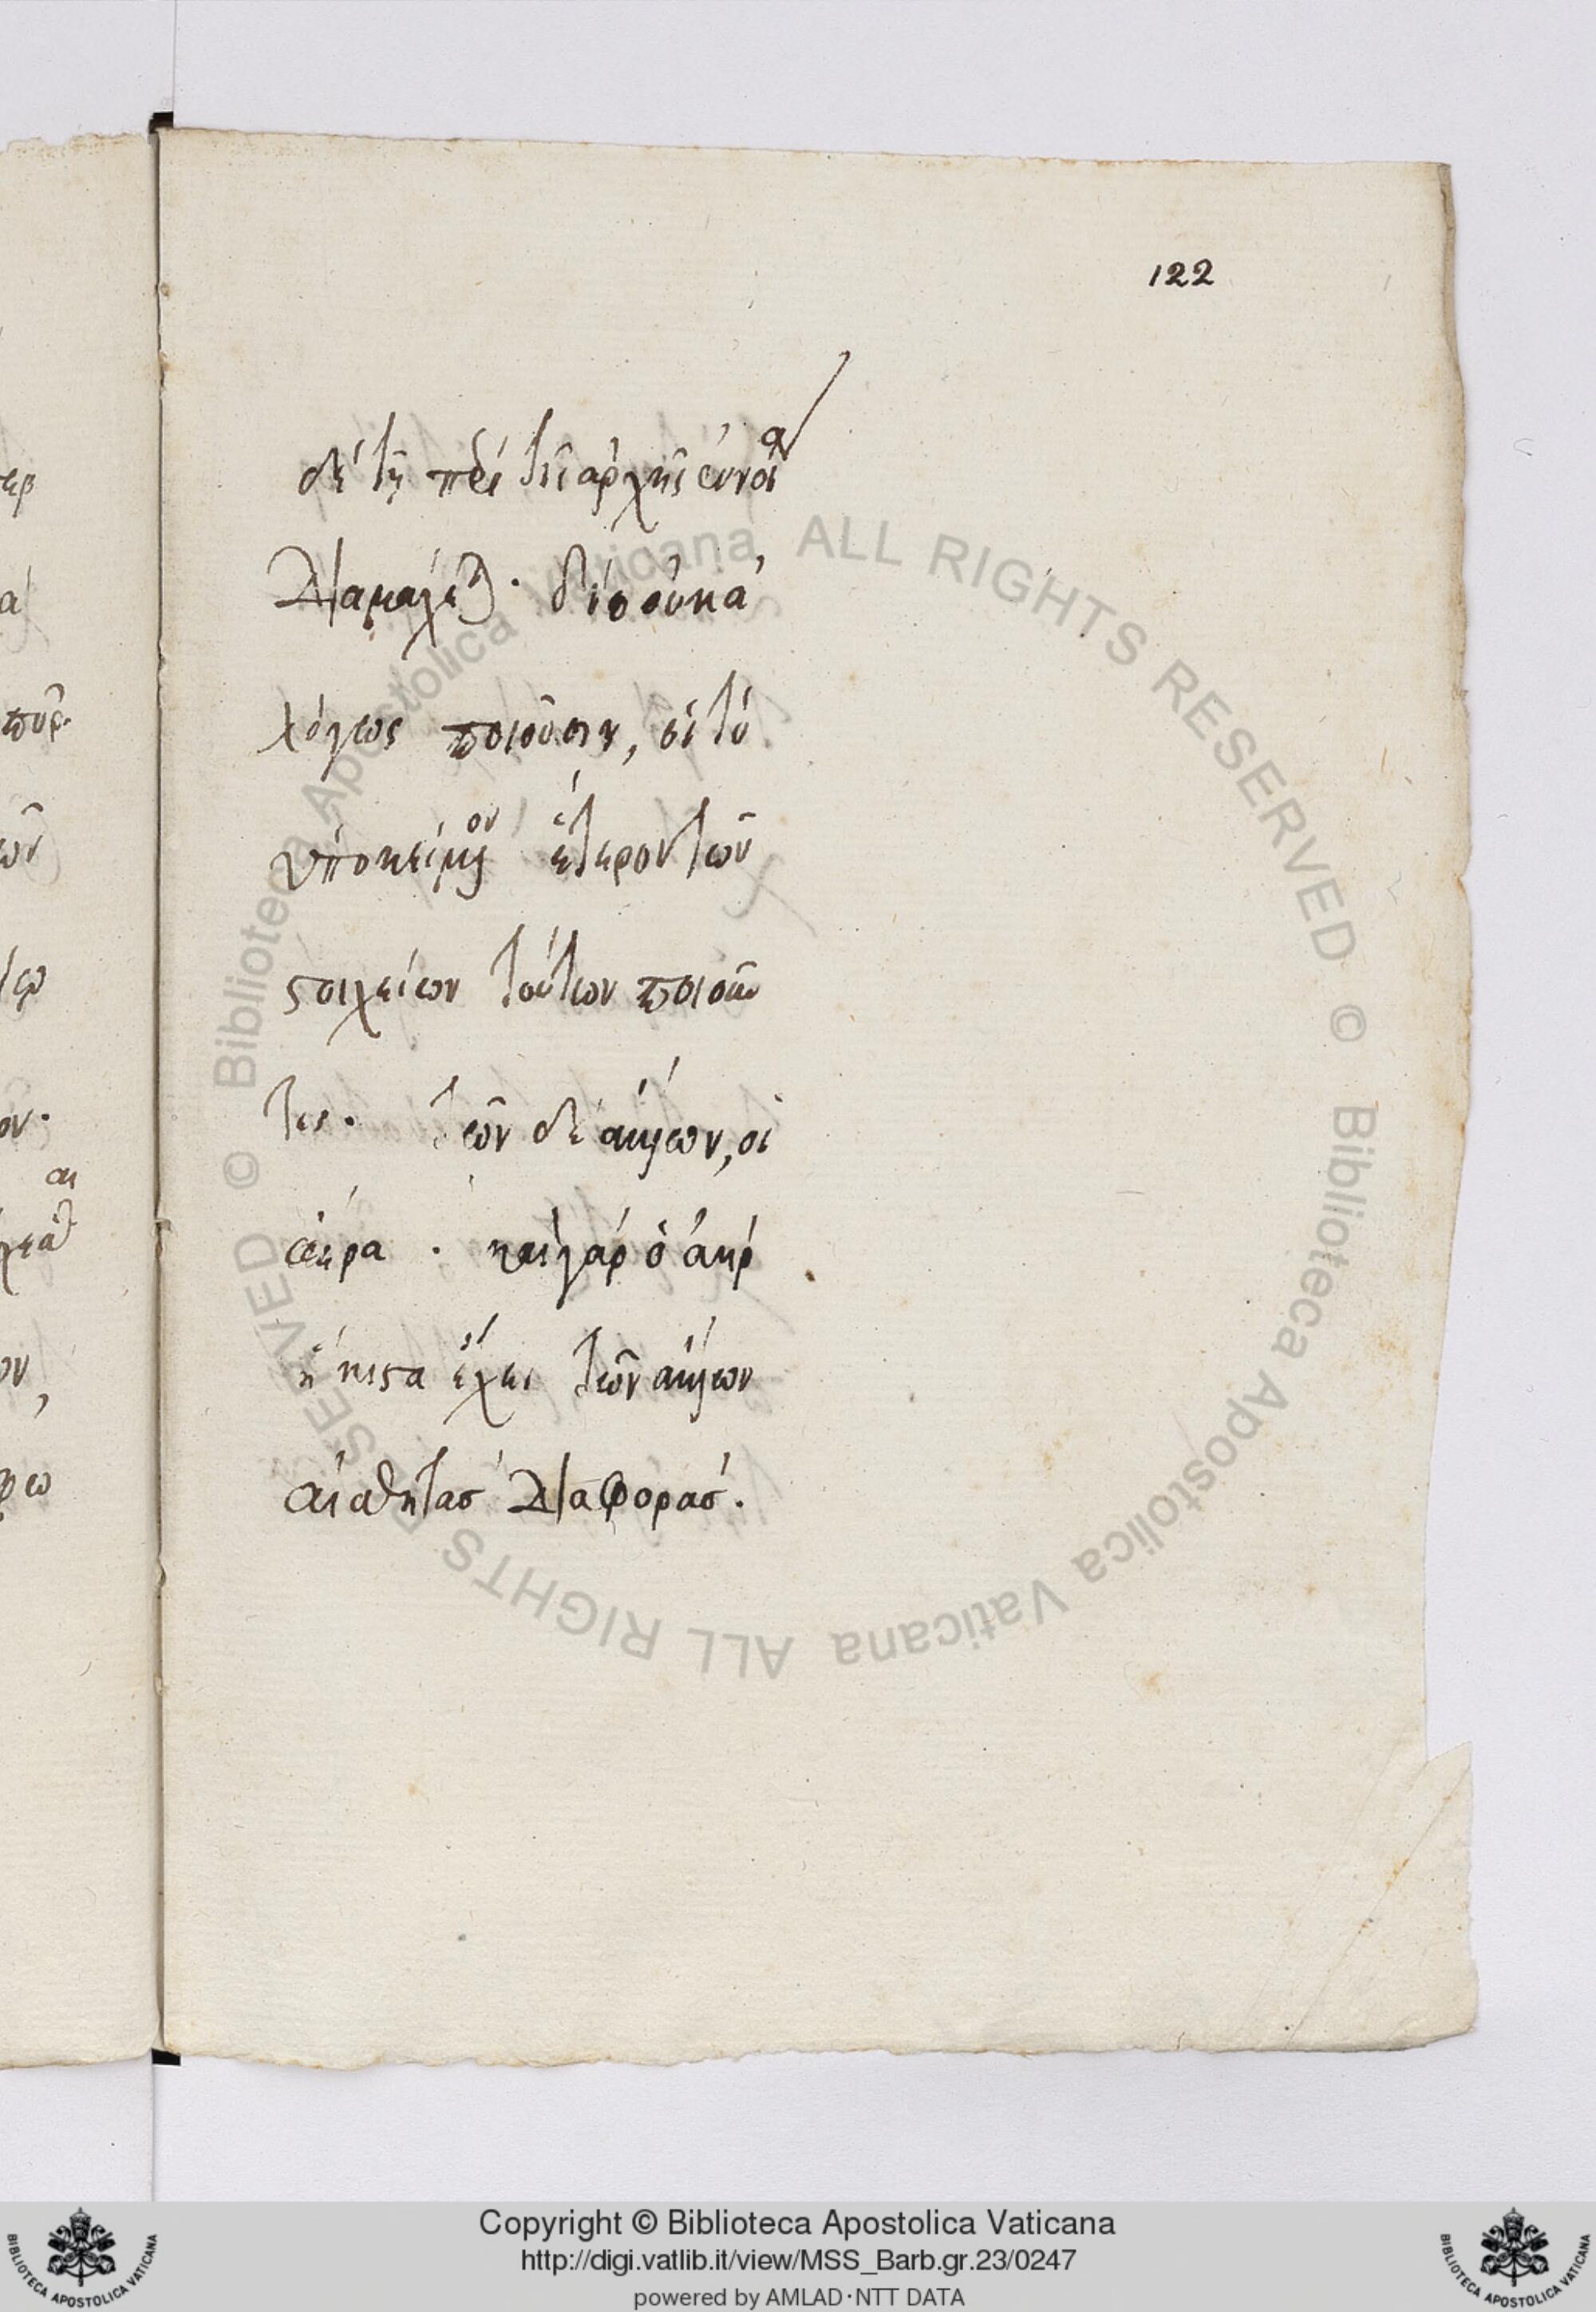 122
δὲ τῇ περὶ τῆς ἀρχῆς ἐννοίᾳ
διαμάχεται· διὸ οὐκ ἀ
λόγως ποιοῦσιν, οἱ τὸ
ὑποκείμενον ἕτερον τῶν
στοιχείων τούτων ποιοῦν
τες· τῶν δὲ ἄλλων, οἱ
ἀέρα · καὶ γὰρ ὁ ἀὴρ
ἥκιστα ἔχει τῶν ἄλλων
αἰσθητὰς διαφοράς.
ALL RIGHTS RESERVED © Biblioteca Apostolica Vaticana ALL RIGHTS RESERVED © Biblioteca Apostolica Vaticana
Copyright © Biblioteca Apostolica Vaticana
http://digi.vatlib.it/view/MSS_Barb.gr.23/0247
powered by AMLAD·NTT DATA
BIBLIOTECA APOSTOLICA VATICANA
BIBLIOTECA APOSTOLICA VATICANA